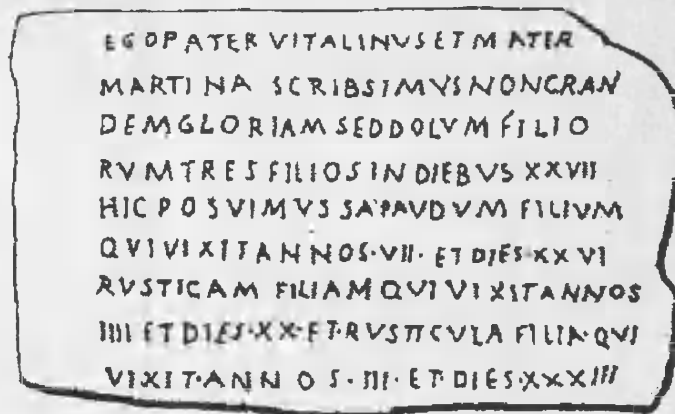 EGOPATER VITALINVSETMATER
MARTINA SCRIBSIMVSNONCRAN
DEMGLORIAMSEDDOLVM FILIO
RVMTRES FILIOSINDIEBVS XXVII
HIC POSVIMVS SAPAVDVM FILIVM
QVIVIXITANNOS·VII· ETDIES·XXVI
RVSTICAM FILIAMQVIVIXITANNOS
IIII ETDIES·XX·ET·RVSTICVLA FILIA·QVI
VIXIT·ANNOS·III·ET·DIES·XXXIII